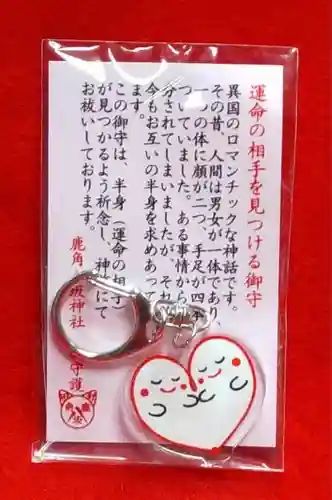 運命の相手を見つける御守
異国のロマンチックな神話です。
その昔、人間は男女が一体であり、
一つの体に顔が二つ、手足が四本
ついていました。ある事情から
分されてしまいましたが、それ
今もお互いの半身を求めあって
ます。
この御守は、半身(運命の相手)
が見つかるよう祈念し、神 にて
お祓いしております。
鹿角 坂神社 守護